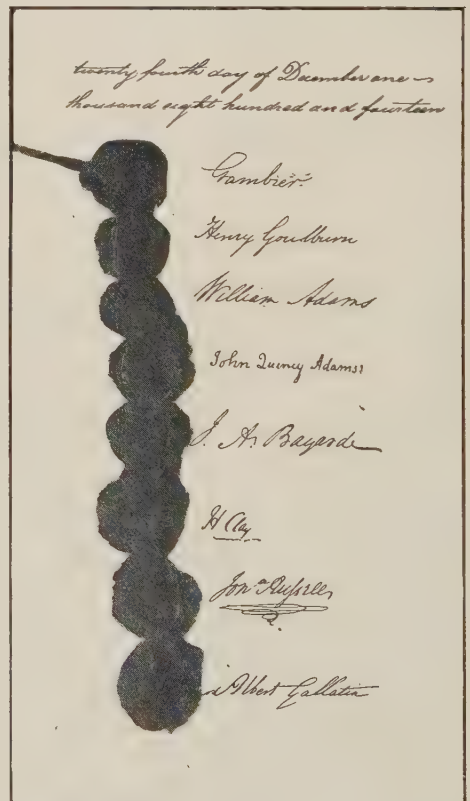 twenty fourth day of December one
thousand eight hundred and fourteen
Gambier
Henry Goulburn
William Adams
John Quincy Adams
J. A. Bayard
H Clay
Jonᵃ Russell
Albert Gallatin